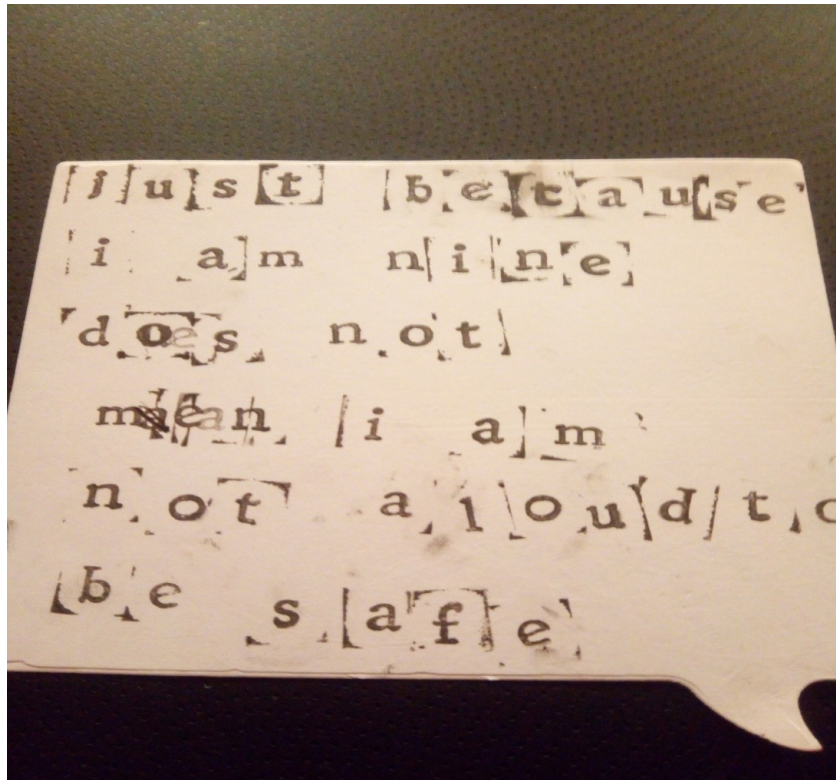 just betause
i am nine
does not
mean i am
not aloud to
be safe